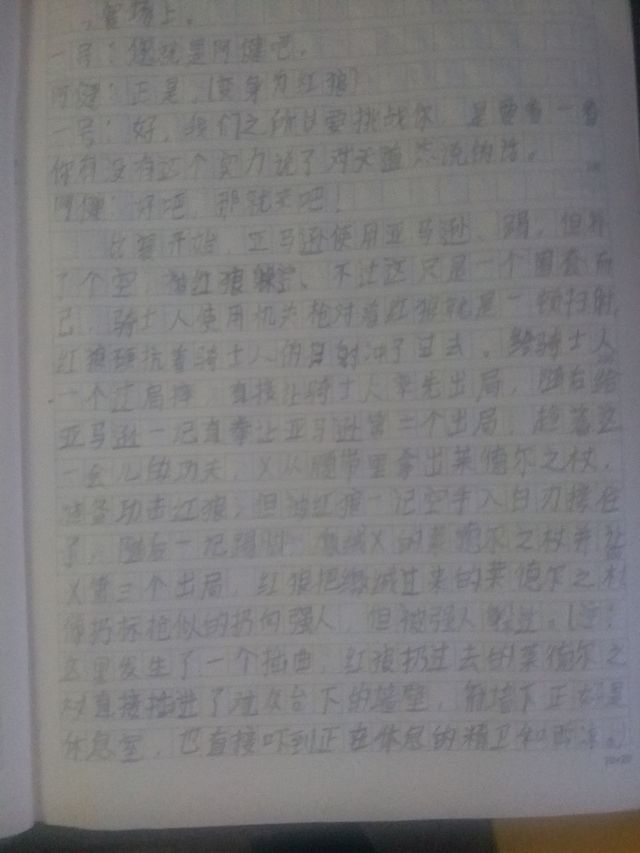 擂场上。
一号：您就是阿健吧。
阿健：正是。（变身为红狼）
一号：好，我们之所以要挑战你，是要看一看
你有没有这个实力说了对天道总说的话。
阿健：好吧，那就来吧！
比赛开始，亚马逊使用亚马逊 踢，但扑
了个空，被红狼躲空。不过这只是一个圈套而
已，骑士人使用机关枪对着红狼就是一顿扫射，
红狼硬抗着骑士人的扫射冲了过去，给骑士人
一个过肩摔，直接让骑士人率先出局，随后给
亚马逊一记直拳让亚马逊第二个出局，趁着这
一会儿的功夫，X从腰带里拿出莱德尔之杖，
准备攻击红狼，但被红狼一记空手入白刃接住
了，随后一记踢 缴械X的莱德尔之杖并让
X第三个出局，红狼把缴械过来的莱德尔之杖
像扔标枪似的扔向强人，但被强人躲过。（注：
这里发生了一个插曲，红狼扔过去的莱德尔之
杖直接插进了观众台下的墙壁，而墙下正好是
休息室，也直接吓到正在休息的精卫和西
20×20